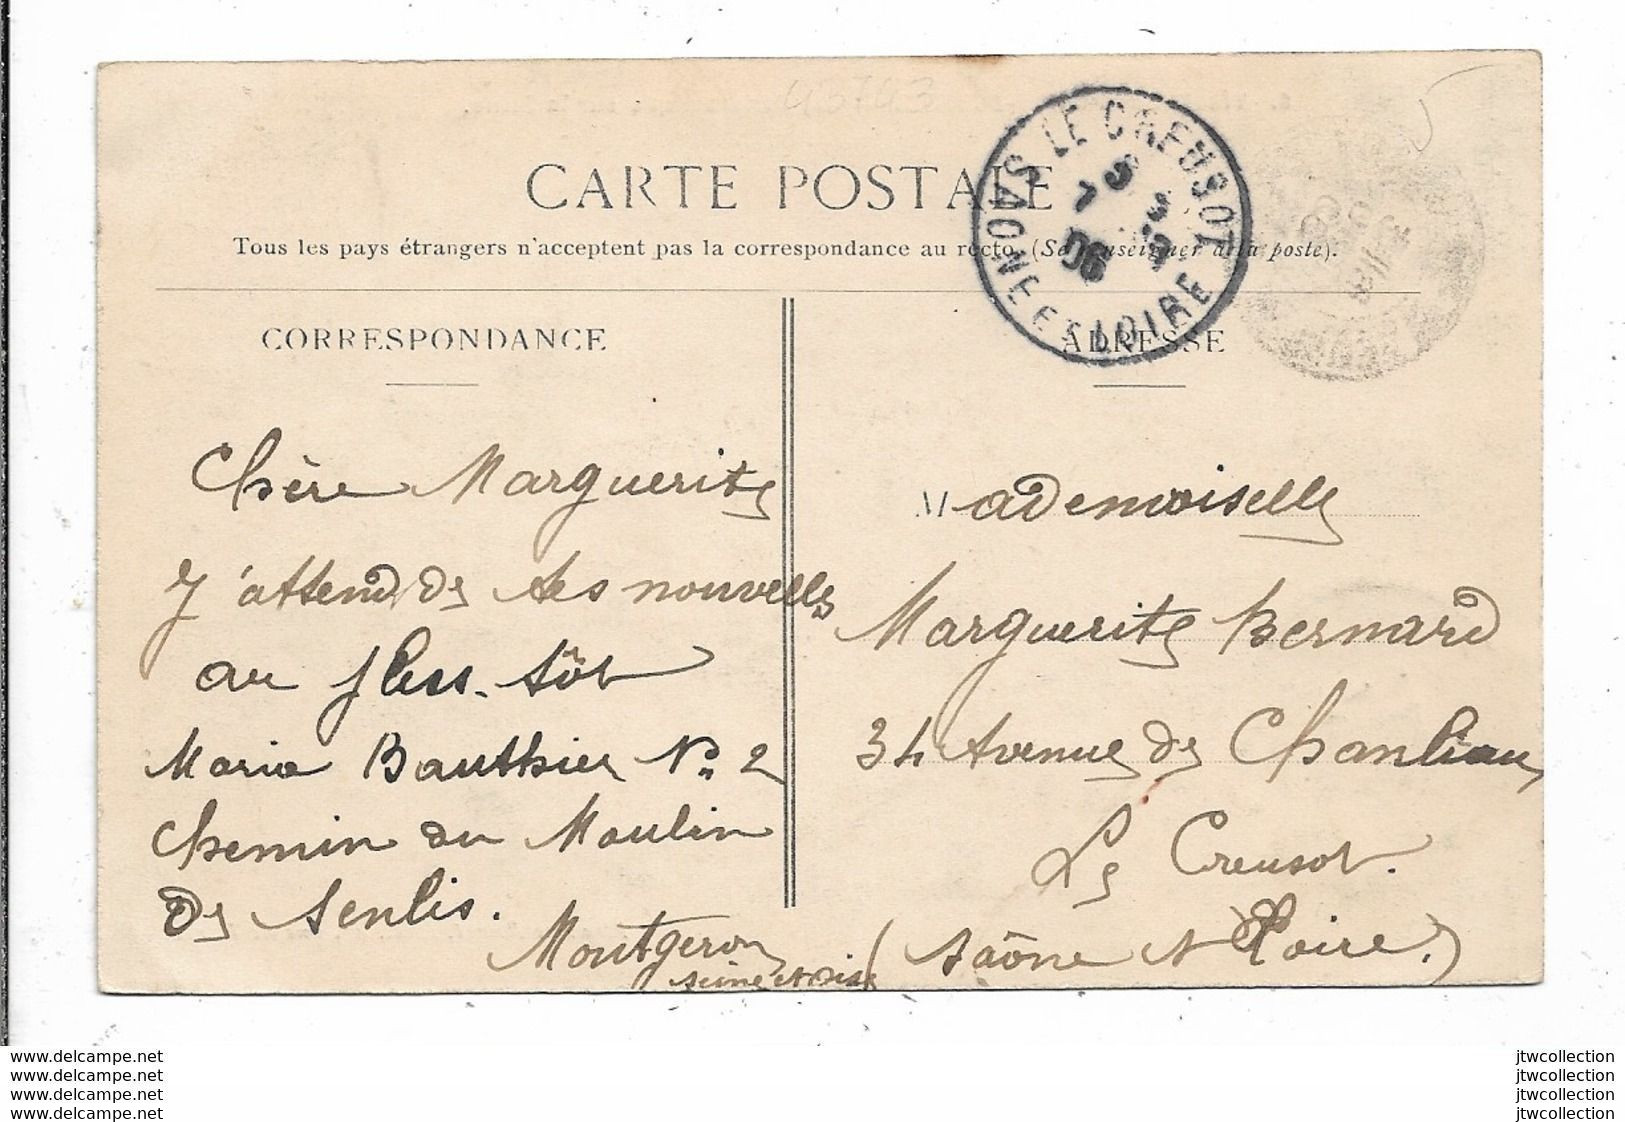 CARTE POSTALE
Tous les pays étrangers n'acceptent pas la correspondance au recto. (Se renseigner à la poste).
LE CREUSOT
SAONE ET LOIRE
06
CORRESPONDANCE
Chère Marguerite
J'attend de tes nouvelles
au pluss-tôt
Maria Bauthier N° 2
Chemin du Moulin
de Senlis.
Montgeron
Seine et Oise
ADRESSE
Mademoiselle
Marguerite Bernard
34 Avenue de Chanliau
Le Creusot.
(Saône et Loire.)
www.delcampe.net
www.delcampe.net
www.delcampe.net
www.delcampe.net
jtwcollection
jtwcollection
jtwcollection
jtwcollection